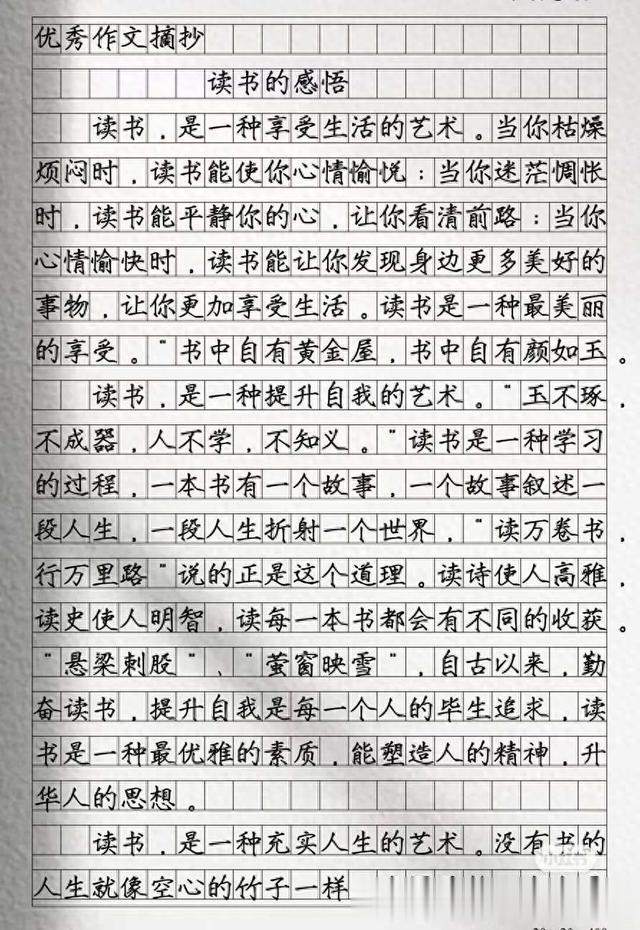 优秀作文摘抄
读书的感悟
读书，是一种享受生活的艺术。当你枯燥
烦闷时，读书能使你心情愉悦；当你迷茫惆怅
时，读书能平静你的心，让你看清前路；当你
心情愉快时，读书能让你发现身边更多美好的
事物，让你更加享受生活。读书是一种最美丽
的享受。“书中自有黄金屋，书中自有颜如玉。
读书，是一种提升自我的艺术。“玉不琢，
不成器，人不学，不知义。“读书是一种学习
的过程，一本书有一个故事，一个故事叙述一
段人生，一段人生折射一个世界，“读万卷书，
行万里路“说的正是这个道理。读诗使人高雅，
读史使人明智，读每一本书都会有不同的收获。
“悬梁刺股“、“萤窗映雪“，自古以来，勤
奋读书，提升自我是每一个人的毕生追求，读
书是一种最优雅的素质，能塑造人的精神，升
华人的思想。
读书，是一种充实人生的艺术。没有书的
人生就像空心的竹子一样
小红书